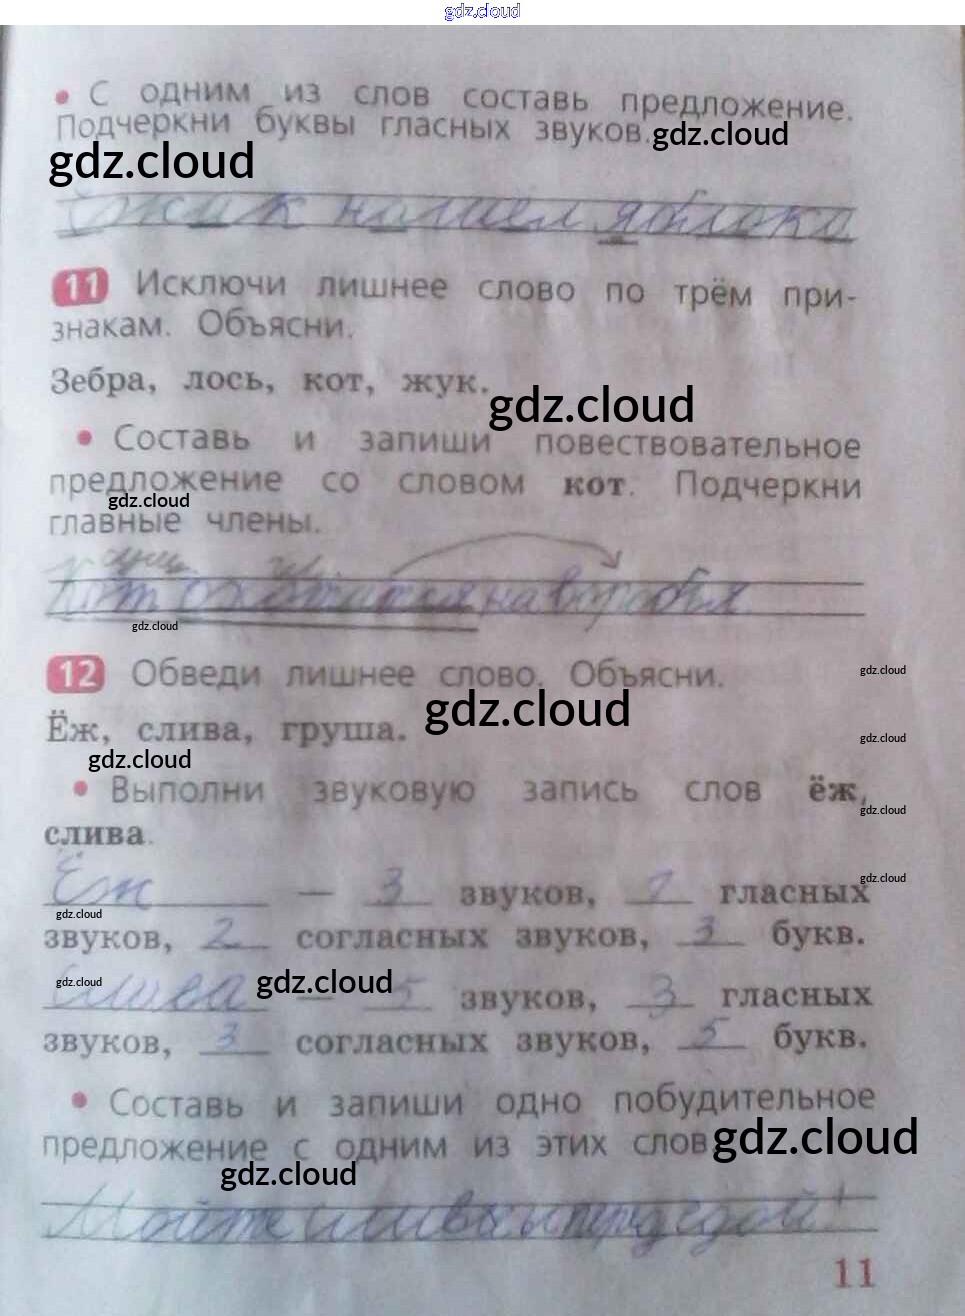 gdz.cloud
• С одним из слов составь предложение.
Подчеркни буквы гласных звуков. gdz.cloud
gdz.cloud
Ёжик нашёл яблоко
11 Исключи лишнее слово по трём при-
знакам. Объясни.
Зебра, лось, кот, жук.
gdz.cloud
• Составь и запиши повествовательное
предложение со словом кот. Подчеркни
gdz.cloud
главные члены.
Кот охотится на воробья
gdz.cloud
12 Обведи лишнее слово. Объясни.
gdz.cloud
gdz.cloud
Ёж, слива, груша.
gdz.cloud
gdz.cloud
• Выполни звуковую запись слов ёж,
gdz.cloud
слива.
gdz.cloud
Ёж — 3 звуков, 1 гласных
gdz.cloud
звуков, 2 согласных звуков, 3 букв.
gdz.cloud
gdz.cloud
Слива — 5 звуков, 3 гласных
звуков, 3 согласных звуков, 5 букв.
• Составь и запиши одно побудительное
предложение с одним из этих слов.
gdz.cloud
gdz.cloud
Мойте сливы перед едой!
11